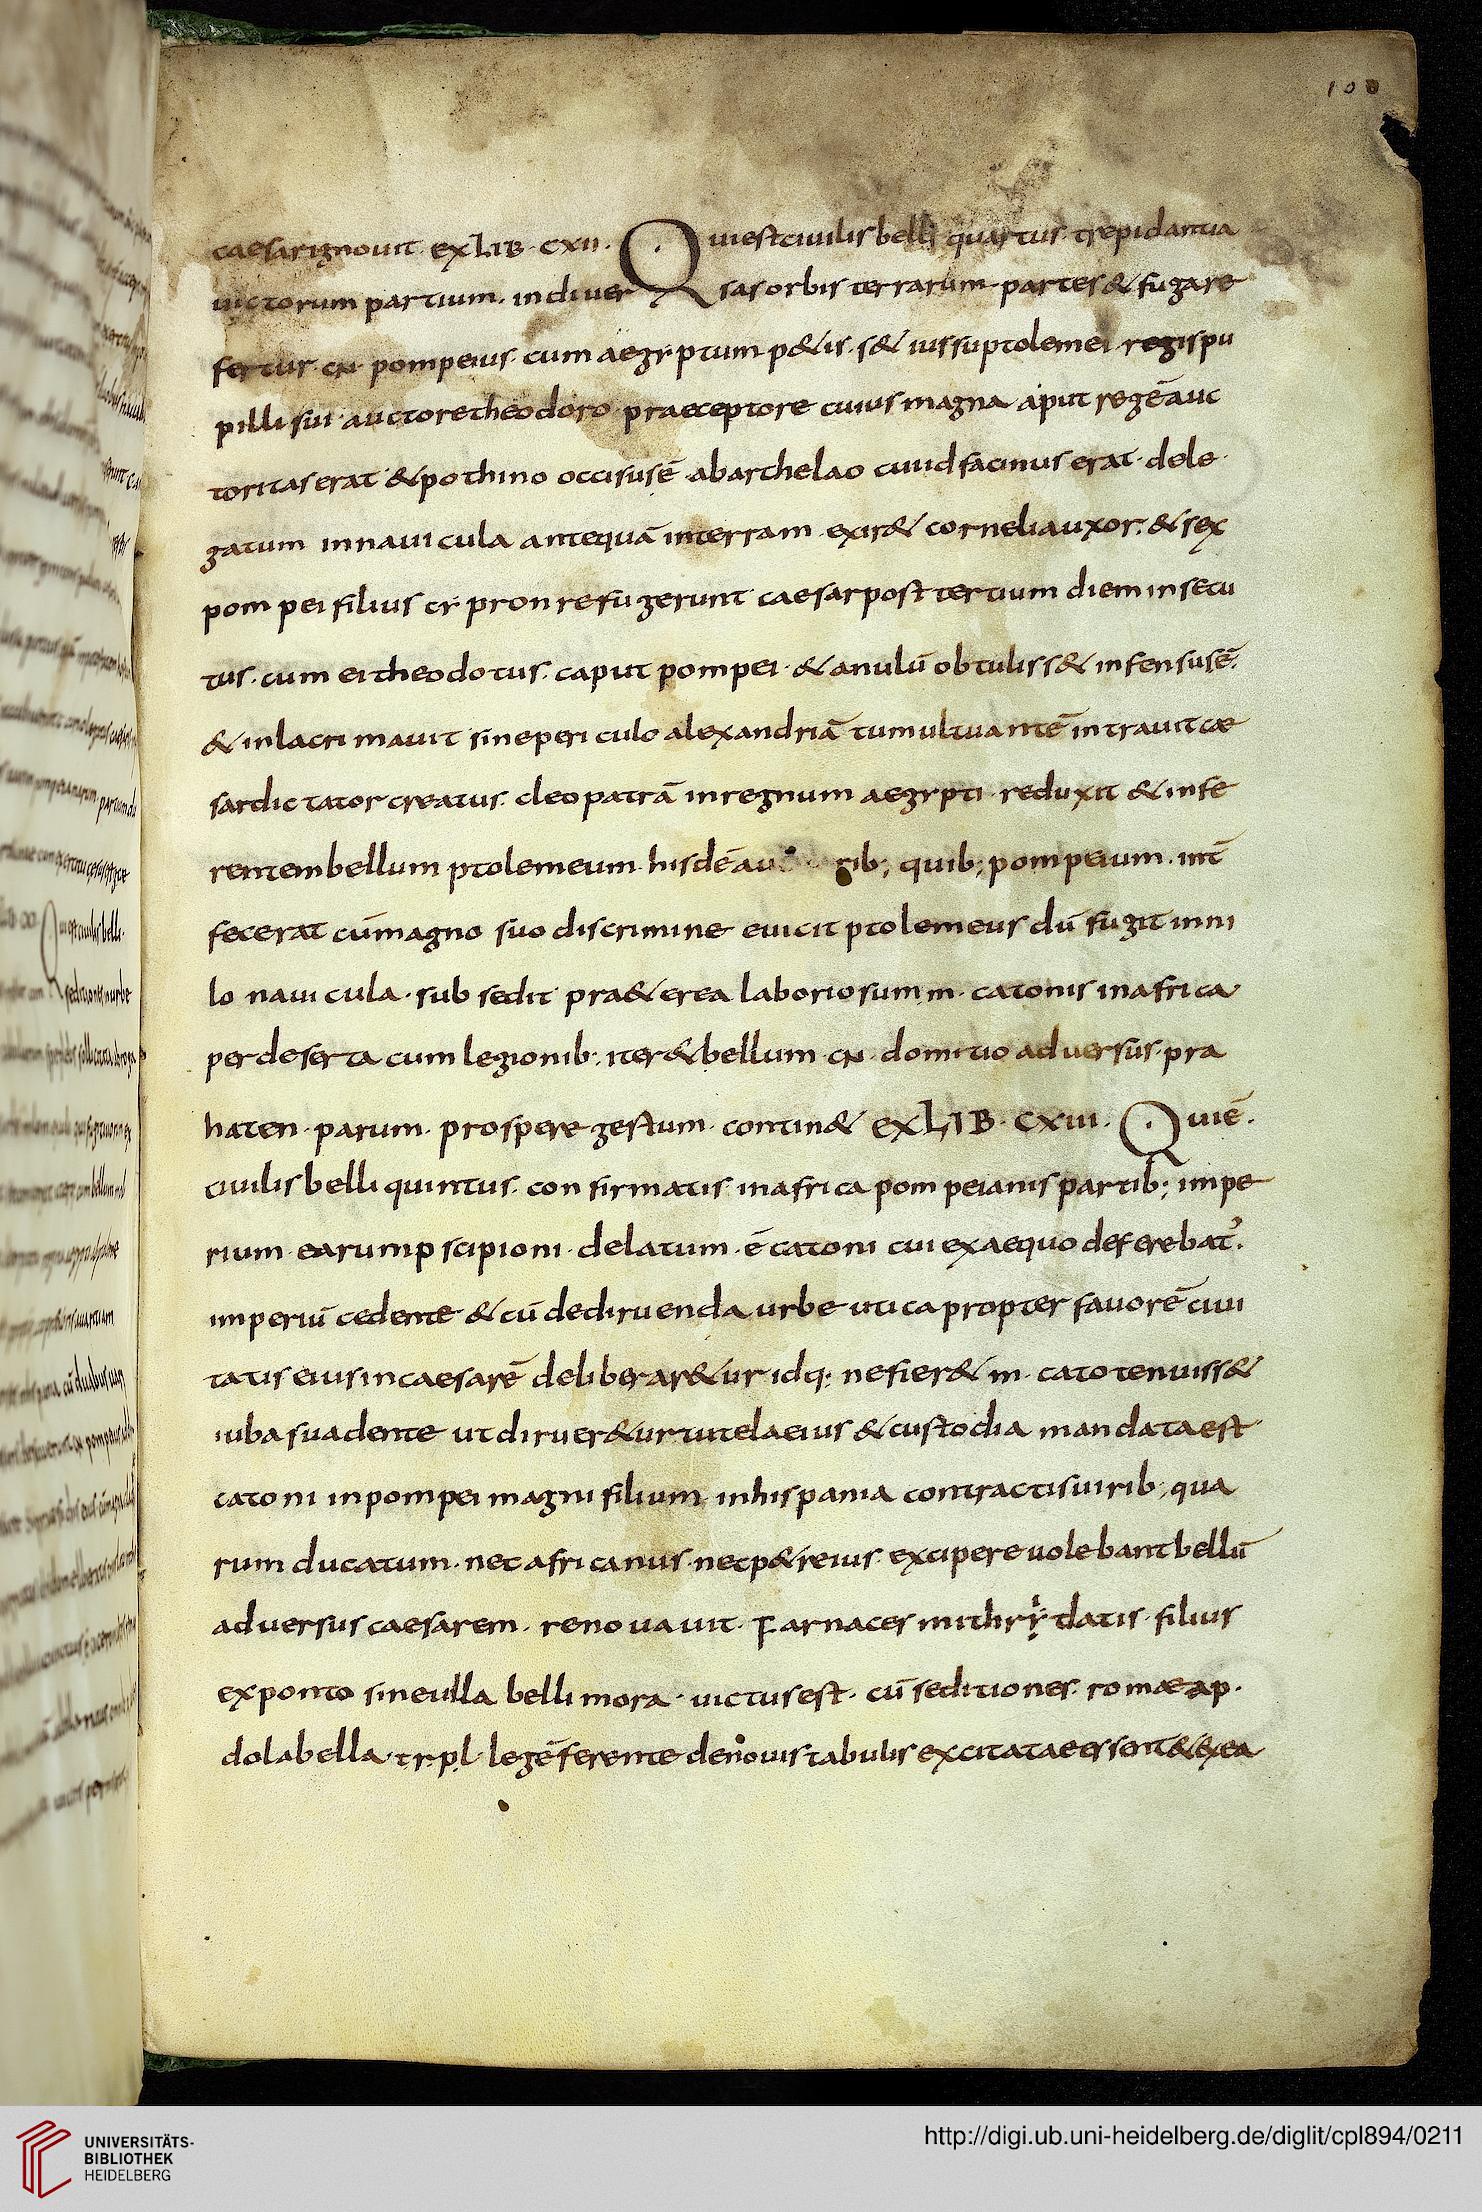 100
caesar ignouit ex LIB · CXII · Qui est ciuilis belli quartus trepidantia
uictorum partium · in diuersas orbis terrarum partes & fugare
fertur · cn · pompeius · cum aegyptum p&is · s& iussu ptolemei · regis pu
pilli sui auctore theodoro praeceptore cuius magna aput regē auc
toritas erat & pothino occisus ē ab archelao cui id facinus erat · dele
gatum in nauicula antequā in terram exir& cornelia uxor · & sex
pompei filius cr pron refugerunt caesar post tertium diem insecu
tus · cum ei theodotus · caput pompei · & anulū obtuliss& infensus ē ·
& inlacrimauit sine periculo alexandriā tumultuantē intrauit cae
sar dictator creatus · cleopatrā in regnum aegypti · reduxit & infe
rentem bellum ptolemeum hisdē rib; quib; pompeium · int
fecerat cū magno suo discrimine euicit ptolemeus dū fugit in ni
lo nauicula · subsedit pra&erea laboriosum m · catonis in africa
per deserta cum legionib; iter & bellum cn · domitio aduersus · pra
haten · parum · prospere gestum · contin& ex LIB · CXIII · Qui ē ·
ciuilis belli quintus · confirmatis in africa pompeianis partib; impe
rium earum p scipioni · delatum · ē catoni cui ex aequo deferebat̉ ·
imperiū cedente & cū de diruenda urbe utica propter fauorē ciui
tatis eius in caesarē deliberar&ur idq; ne fier& m · cato tenuiss&
iuba suadente ut diruer&ur tutela eius & custodia mandata est
catoni in pompei magni filium in hispania contractis uirib; qua
rum ducatum · nec africanus · nec p&reius excipere uolebant bellū
aduersus caesarem · renouauit · Farnaces mithrydatis · filius
ex ponto sine ulla belli mora · uictus est · cū seditiones romae a p ·
dolabella · tr · pl · legē ferente de nouis tabulis excitatae essent & ex ea
UNIVERSITÄTS-
BIBLIOTHEK
HEIDELBERG
http://digi.ub.uni-heidelberg.de/diglit/cpl894/0211